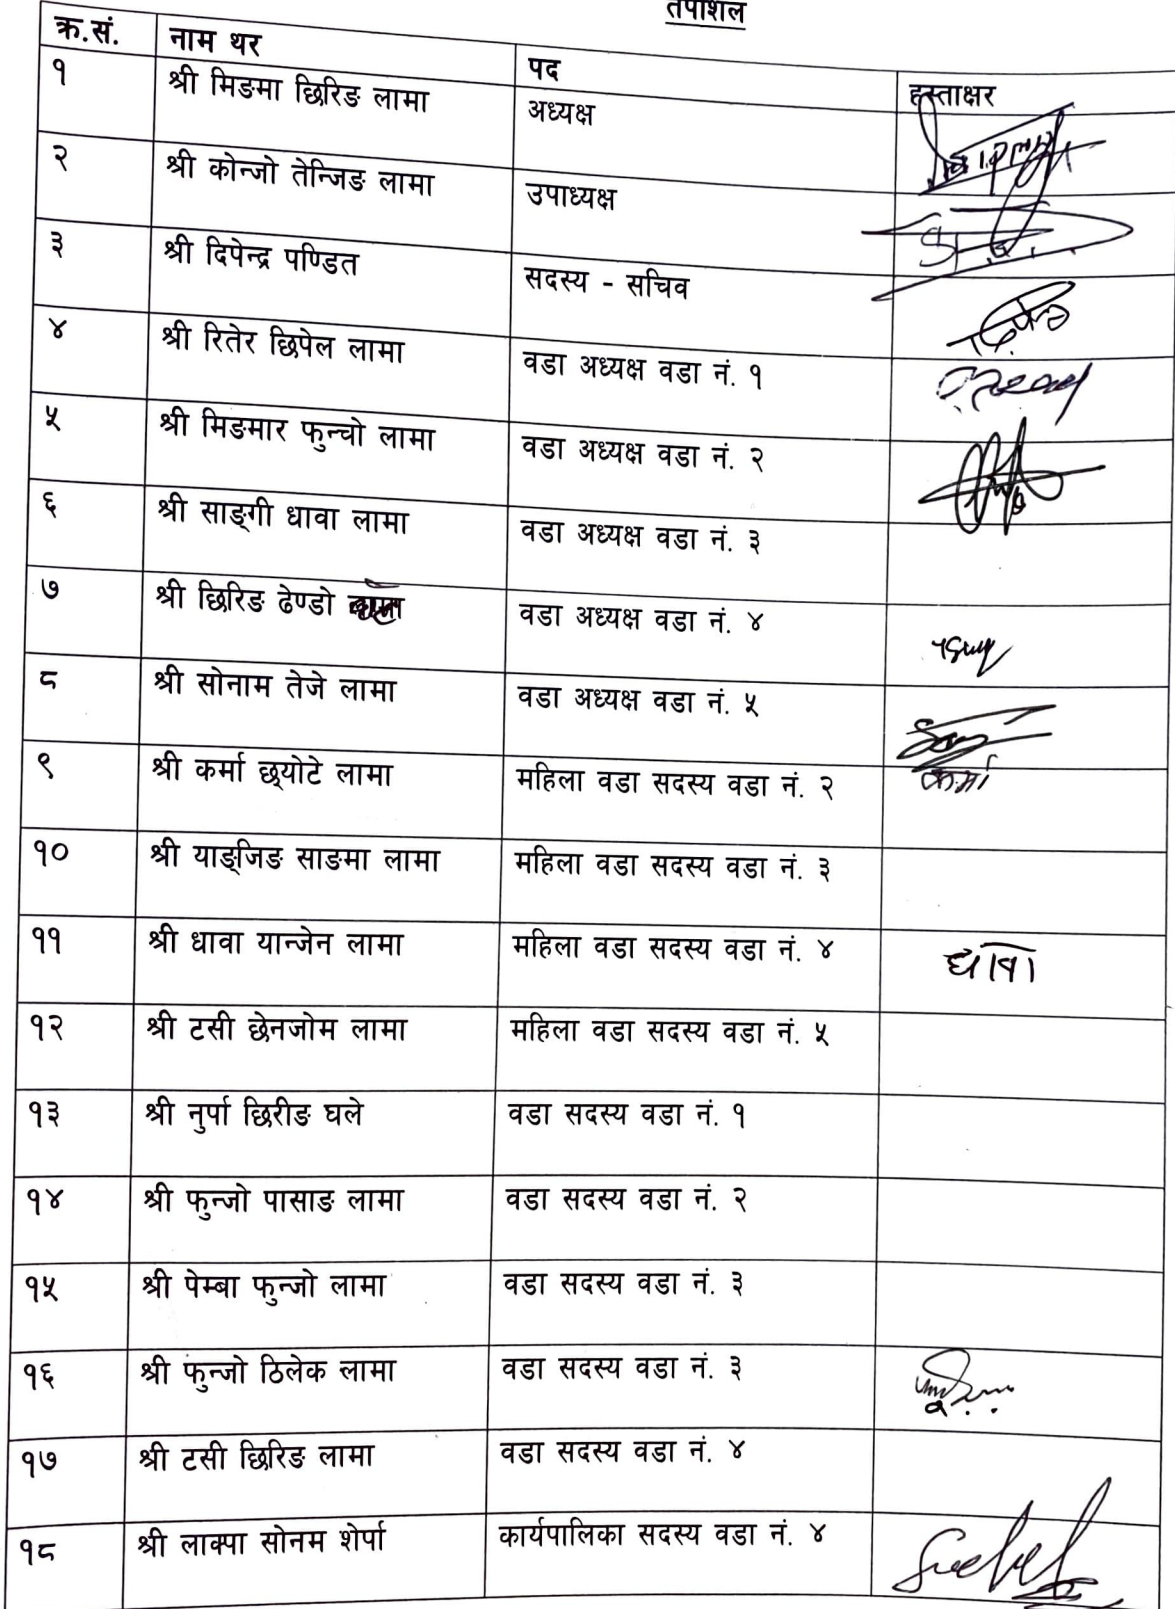 तपाशिल
क्र.सं. नाम थर पद हस्ताक्षर
१ श्री मिङमा छिरिङ लामा अध्यक्ष
२ श्री कोन्जो तेन्जिङ लामा उपाध्यक्ष
३ श्री दिपेन्द्र पण्डित सदस्य - सचिव
४ श्री रितेर छिपेल लामा वडा अध्यक्ष वडा नं. १
५ श्री मिङमार फुन्चो लामा वडा अध्यक्ष वडा नं. २
६ श्री साङ्गी धावा लामा वडा अध्यक्ष वडा नं. ३
७ श्री छिरिङ ढेण्डो वडा अध्यक्ष वडा नं. ४
८ श्री सोनाम तेजे लामा वडा अध्यक्ष वडा नं. ५
९ श्री कर्मा छ्योटे लामा महिला वडा सदस्य वडा नं. २ कर्मा
१० श्री याङ्जिङ साङमा लामा महिला वडा सदस्य वडा नं. ३
११ श्री धावा यान्जेन लामा महिला वडा सदस्य वडा नं. ४ धावा
१२ श्री टसी छेनजोम लामा महिला वडा सदस्य वडा नं. ५
१३ श्री नुर्पा छिरीङ घले वडा सदस्य वडा नं. १
१४ श्री फुन्जो पासाङ लामा वडा सदस्य वडा नं. २
१५ श्री पेम्बा फुन्जो लामा वडा सदस्य वडा नं. ३
१६ श्री फुन्जो ठिलेक लामा वडा सदस्य वडा नं. ३
१७ श्री टसी छिरिङ लामा वडा सदस्य वडा नं. ४
१८ श्री लाक्पा सोनम शेर्पा कार्यपालिका सदस्य वडा नं. ४